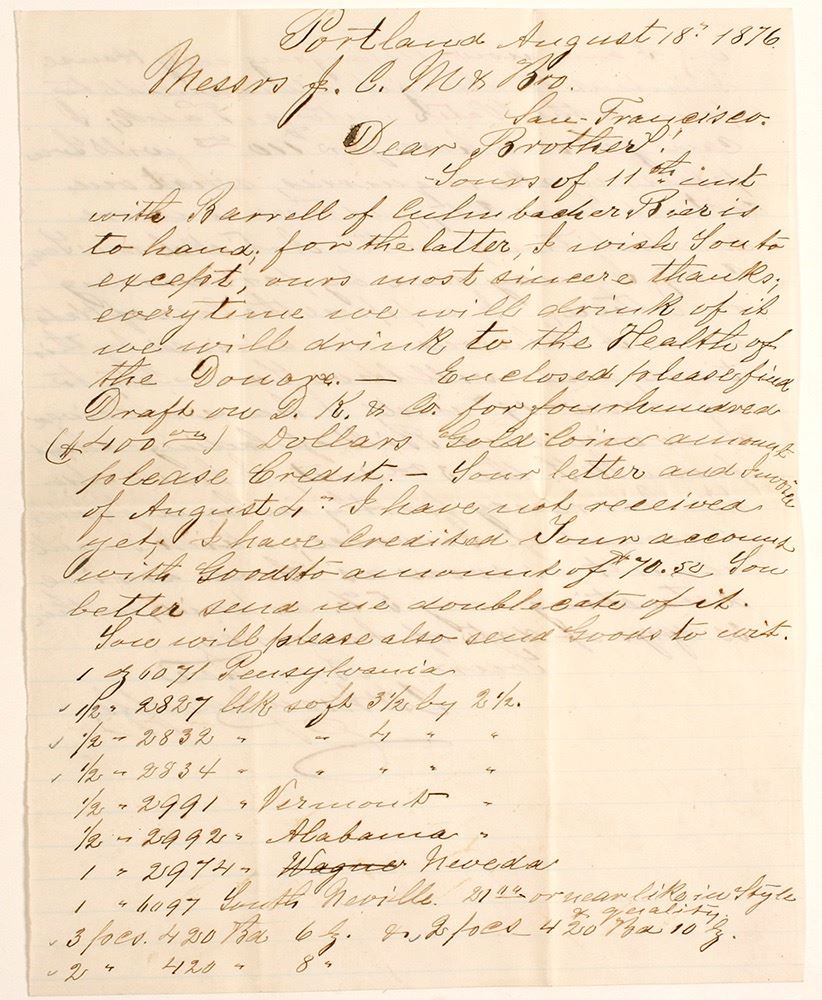 Portland August 18" 1876.
Messrs J. C. M & Bro.
San-Francisco.
Dear Brother!
Yours of 11th inst
with Barrell of Culmbacher Bier is
to hand; for the latter, I wish You to
except, ours most sincere thanks;
everytime we will drink of it
we will drink to the Health of
the Donore. — Enclosed please find
Draft on D. K. & Co. for fourhundred
($400 00/00) Dollars Gold Coin amount
please Credit. — Your letter and Invoice
of August 4" I have not received
yet; I have Credited Your account
with Goods to amount of $70.50 You
better send me doublecate of it.
You will please also send Goods to wit.
1 dz 6071 Pensylvania
1/2 " 2827 Blk soft 3 1/2 by 2 1/2.
1/2 " 2832 " " 4 " "
1/2 " 2834 " " " " "
1/2 " 2991 " Vermont "
1/2 " 2992 " Alabama "
1 " 2974 " Wagner Neveda
1 " 6097 South Neville. 21 00 or near like in Style
& quality.
3 pocs. 420 Bd 6 lg. & 2 pocs 420 Bd 10 lg.
2 " 420 " 8 "